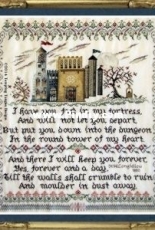 I have you fast in my fortress,
And will not let you depart,
But put you down into the dungeon
In the round tower of my heart.
And there I will keep you forever,
Yes forever and a day,
Till the walls shall crumble to ruin
And moulder in dust away.